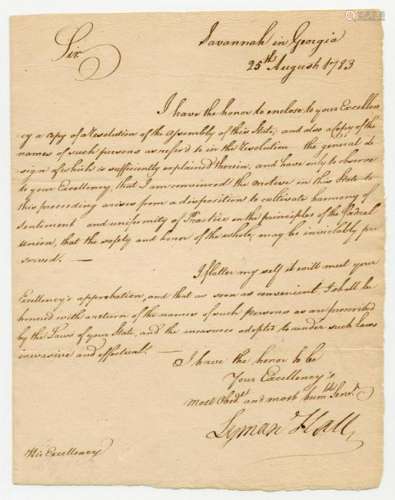 Sir
Savannah in Georgia
25th August 1783
I have the honor to enclose to your Excellen
cy a copy of a Resolution of the Assembly of this State; and also a Copy of the
names of such persons as refer'd to in the Resolution — the general de
sign of which is sufficiently explained therein, and have only to observe
to your Excellency, that I am convinced the motive in this State to
this proceeding arises from a disposition to cultivate harmony of
sentiment and uniformity of Practice on the principles of the Fœderal
Union, that the safety and honor of the whole, may be inviolably pre
served. —
I flatter my self it will meet your
Excellency's approbation, and that as soon as convenient I shall be
honored with a return of the names of such persons as are proscribed
by the Laws of your State, and the measures adopted to render such laws
and effectual. —
I have the honor to be
Your Excellency's
most Obedt. and most humble Servt.
Lyman Hall
His Excellency